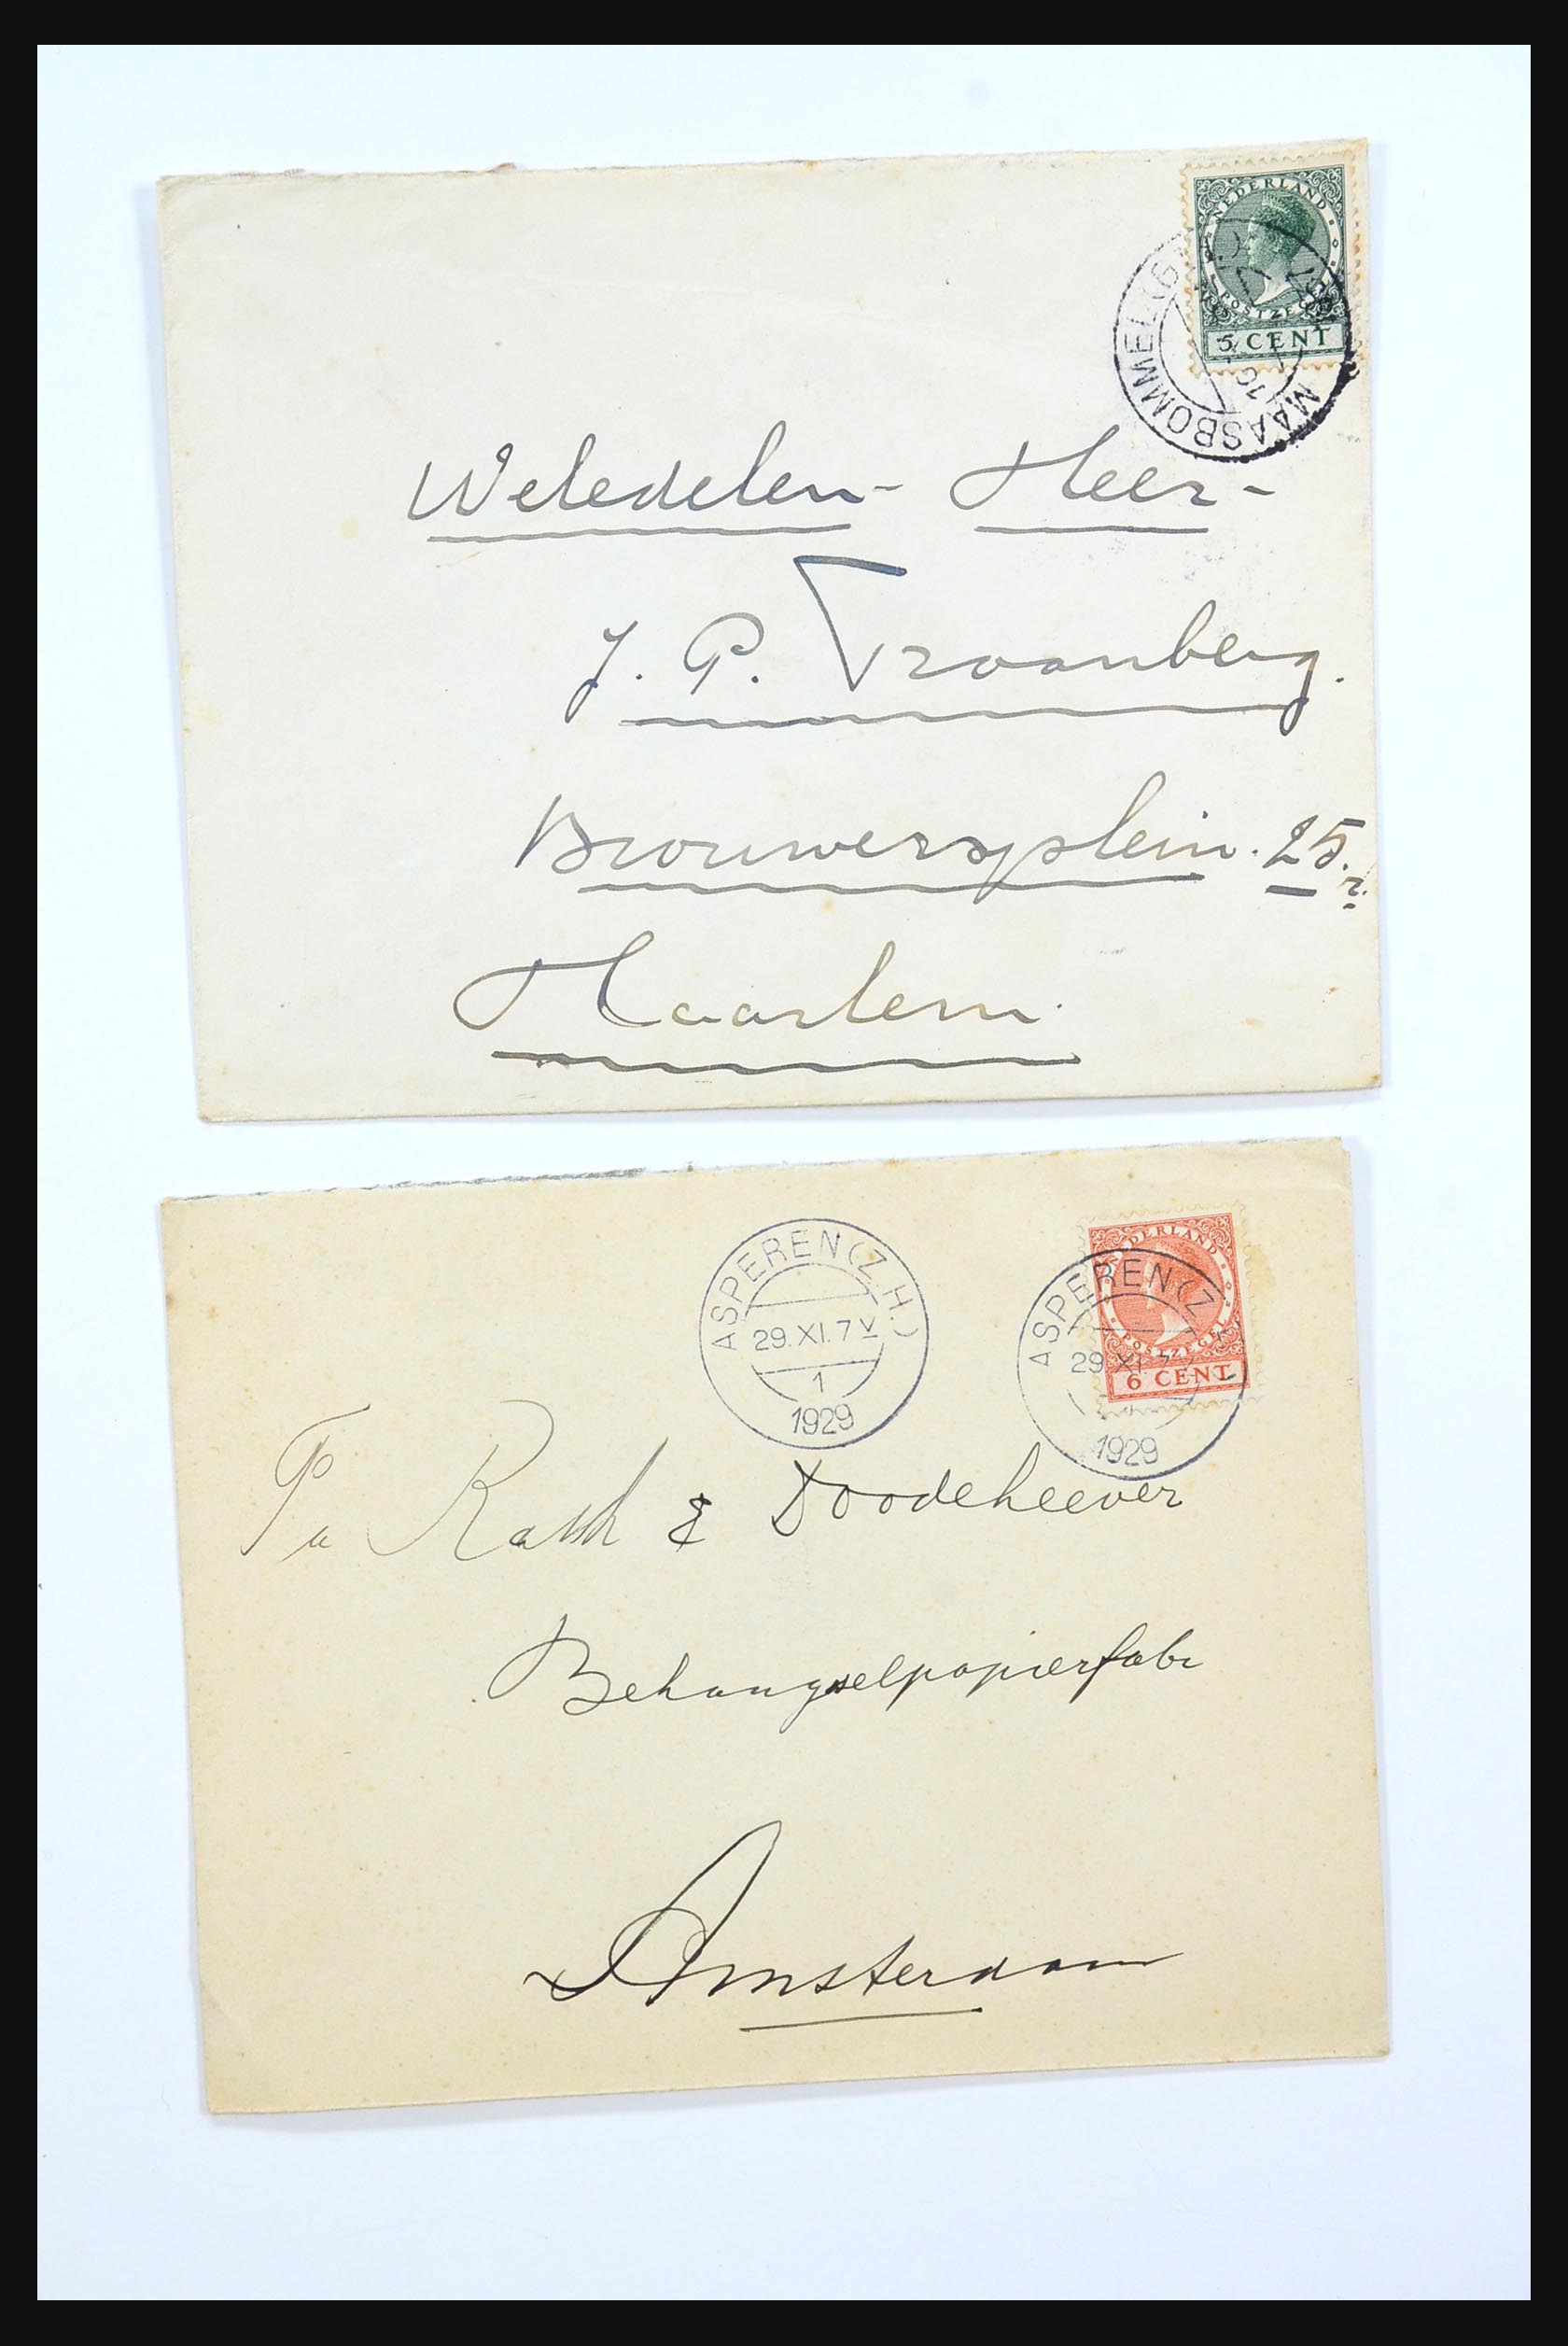 NEDERLAND
POSTZEGEL
5 CENT
MAASBOMMEL
Weledelen- Heer-
J. P. Vraanberg.
Brouwersplein. 25. r.
Haarlem.
NEDERLAND
POSTZEGEL
6 CENT
ASPEREN (Z.H.)
29.XI.7V
1
1929
ASPEREN (Z
29 XI.7V
1929
Fa Rath & Doodeheever
Behangselpapierfabr
Amsterdam